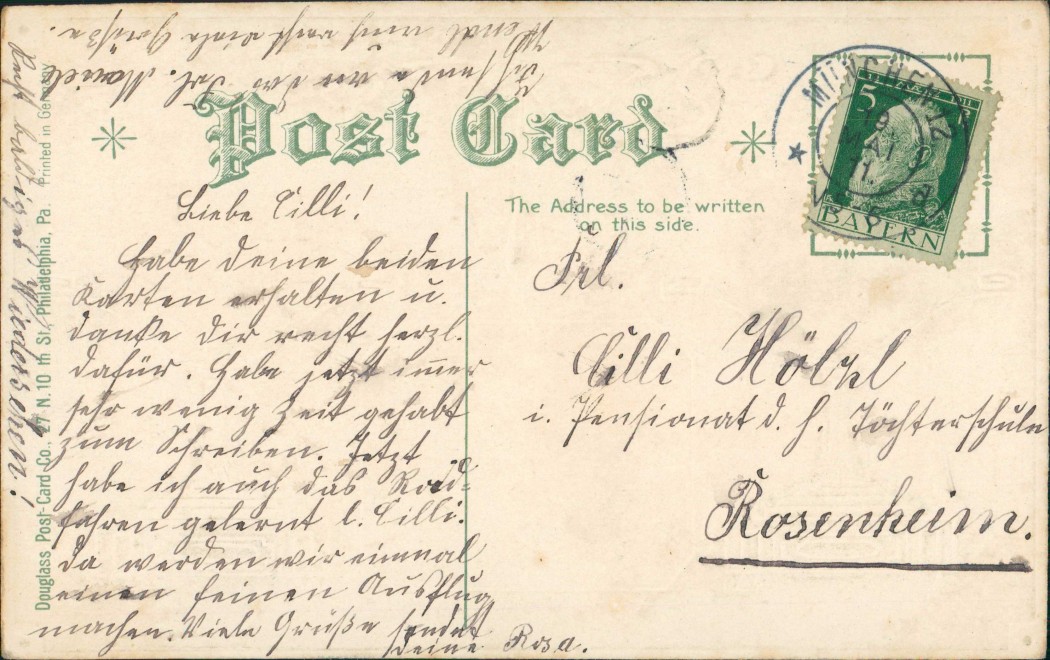 Post Card
The Address to be written
on this side.
Douglass Post-Card Co., 27 N. 10 th St. Philadelphia, Pa. Printed in Germany
MÜNCHEN 12
19
MAI
11.
5
BAYERN
Liebe Cilli!
Habe deine beiden
Karten erhalten u.
danke dir recht herzl.
dafür. Habe jetzt immer
sehr wenig Zeit gehabt
zum Schreiben. Jetzt
habe ich auch das Rad-
fahren gelernt l. Cilli.
Da werden wir einmal
einen feinen Ausflug
machen. Viele Grüße sendet
Deine Rosa.
Recht baldiges Wiedersehen!
Frl.
Cilli Hölzl
i. Pensionat d. h. Töchterschule
Rosenheim.